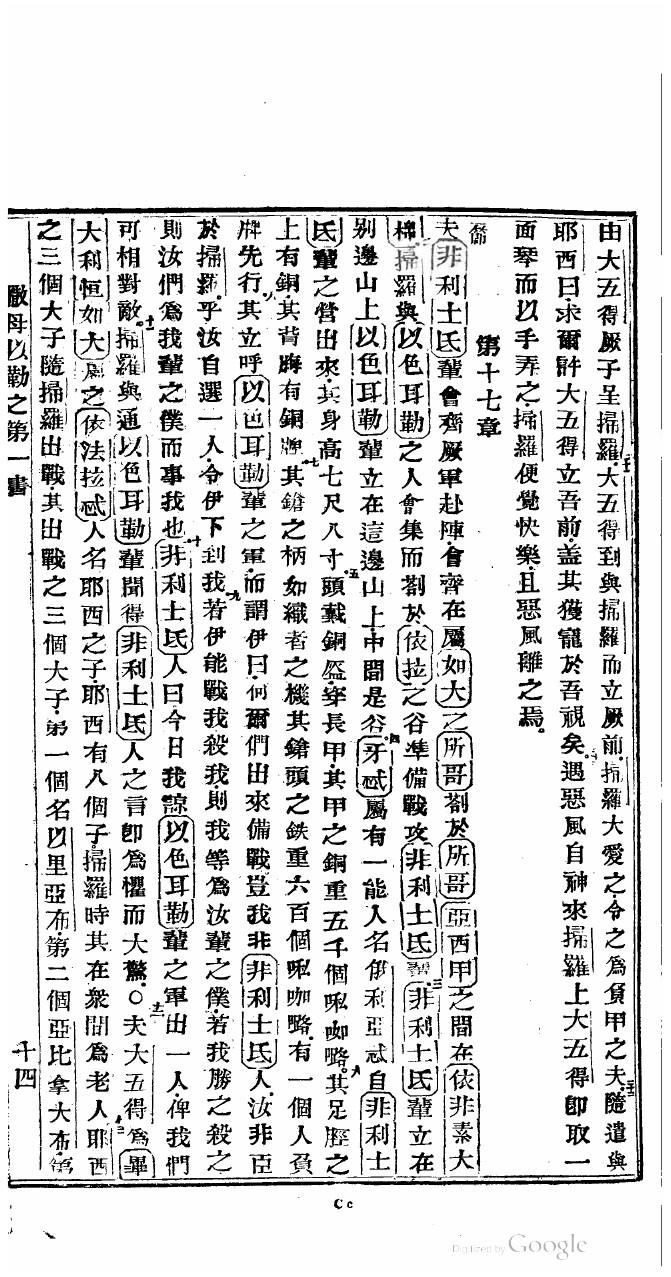 由大五得厥子呈掃羅大五得到與掃羅而立厥前掃羅大愛之令之為負甲之夫隨遣與
耶西曰求爾許大五得立吾前盖其獲寵於吾視矣遇惡風自神來掃羅上大五得即取一
面琴而以手弄之掃羅便覺快樂且惡風離之焉
第十七章
夫非利士氏輩會齊厥軍赴陣會齊在屬如大之所哥劄於所哥亞西甲之間在依非素大
棉掃羅與以色耳勒之人會集而劄於依拉之谷準備戰攻非利士氏輩非利士氏輩立在
別邊山上以色耳勒輩立在這邊山上中間是谷牙忒屬有一能人名俄利亞忒自非利士
氏輩之營出來其身高七尺八寸頭戴銅盔穿長甲其甲之銅重五千個𠹌咖嚧其足脛之
上有銅其背胸有銅牌其鎗之柄如織者之機其鎗頭之鉄重六百個𠹌咖嚧有一個人負
牌先行其立呼以色耳勒輩之軍而謂伊曰何爾們出來備戰豈我非非利士氏人汝非臣
於掃羅乎汝自選一人令伊下到我若伊能戰我殺我則我等為汝輩之僕若我勝之殺之
則汝們為我輩之僕而事我也非利士氏人曰今日我諒以色耳勒輩之軍出一人俾我們
可相對敵掃羅與通以色耳勒輩聞得非利士氏人之言即為懼而大驚○夫大五得為畢
大利恒如大屬之依法拉忒人名耶西之子耶西有八個子掃羅時其在衆間為老人耶西
之三個大子隨掃羅出戰其出戰之三個大子第一個名以里亞布第二個亞比拿大布第
撒母以勒之第一書
十四
Cc
Digitized by Google